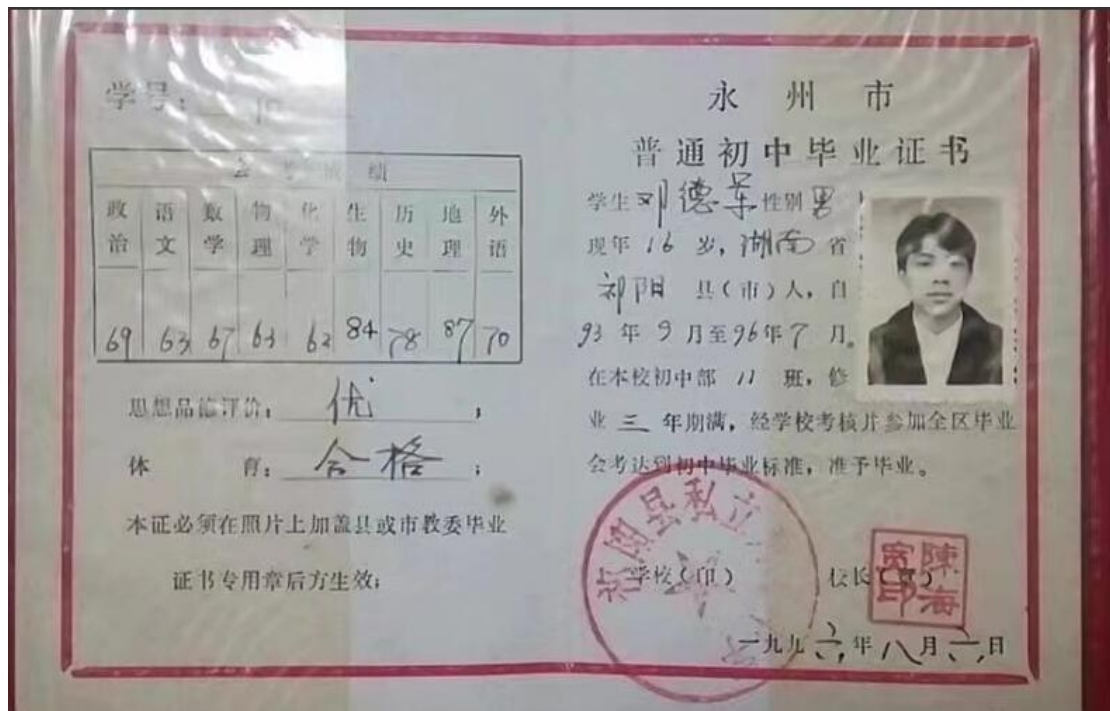 学号：
会考成绩
政治 语文 数学 物理 化学 生物 历史 地理 外语
69 63 67 63 62 84 78 87 70
思想品德评价：优；
体育：合格；
本证必须在照片上加盖县或市教委毕业
证书专用章后方生效；
永州市
普通初中毕业证书
学生邓德荣性别男
现年16岁，湖南省
祁阳县（市）人，自
93年9月至96年7月。
在本校初中部11班，修
业三年期满，经学校考核并参加全区毕业
会考达到初中毕业标准，准予毕业。
祁阳县私立
学校（印） 校长（章）
陳海
印
一九九六年八月六日